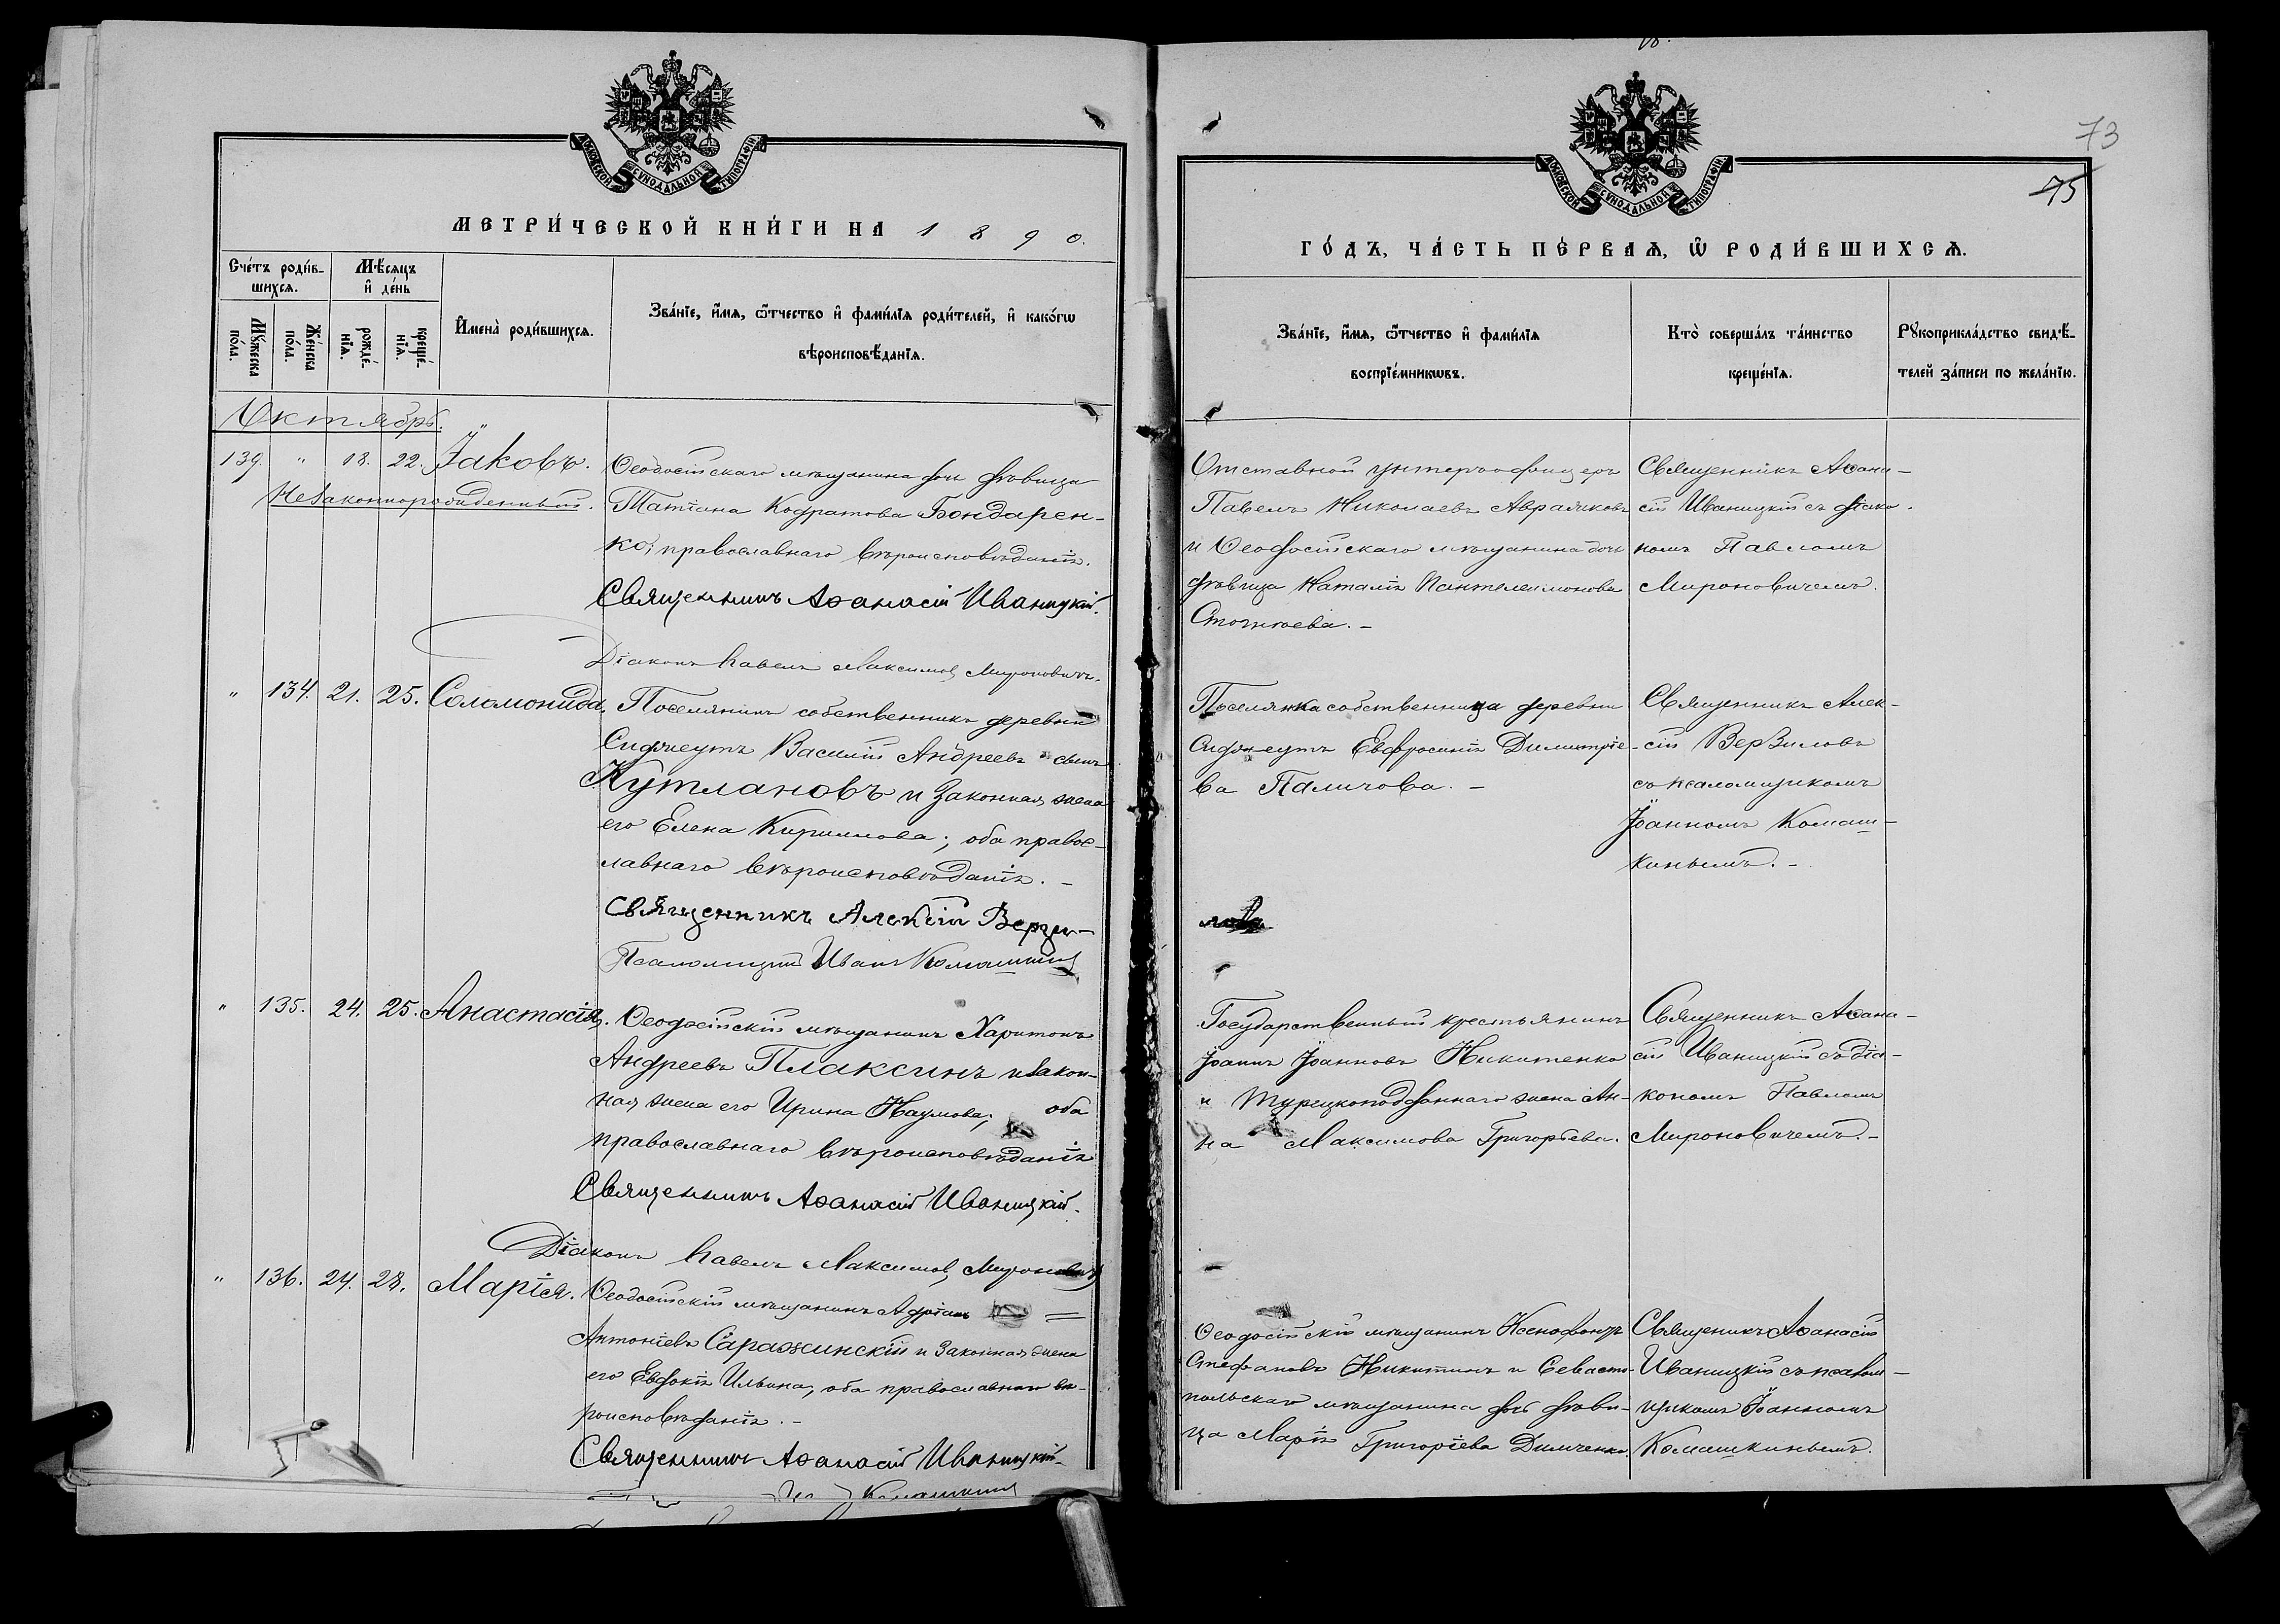 МОСКОВСКОЙ СѴНОДАЛЬНОЙ ТИПОГРАФІИ
МЕТРИ́ЧЕСКОЙ КНИ́ГИ НА 1890.
Сче́тъ роди́в-
шихсѧ.
Мѣ́сѧцъ
и҆ де́нь
Мꙋ́жеска по́ла.
Же́нска по́ла.
рожде́-нїѧ.
креще́-нїѧ.
И҆мена̀ роди́вшихсѧ.
Зва́нїе, и҆́мѧ, ѻ҆́тчество и҆ фами́лїѧ роди́телей, и҆ како́гѡ
вѣроисповѣ́данїѧ.
Октябрь.
139. " 18. 22. Іаковъ.
Незаконнорожденный.
Ѳеодосійскаго мѣщанина дочь дѣвица
Татіана Кодратова Бондарен-
ко; православнаго вѣроисповѣданія.
Священникъ Аѳанасій Иваницкій.
Діаконъ Павелъ Максимов Мироновичъ.
" 134. 21. 25. Соломонида.
Поселянинъ собственникъ деревни
Василій Андреевъ сынъ
Кутлановъ и законная жена
его Елена Кириллова; оба правос-
лавнаго вѣроисповѣданія. –
Священникъ Алексій Верзи-
Псаломщикъ Иванъ Комашкинъ
" 135. 24. 25. Анастасія.
Ѳеодосійскій мѣщанинъ Харитонъ
Андреевъ Плаксинъ и закон-
ная жена его Ирина Наумова; оба
православнаго вѣроисповѣданія
Священникъ Аѳанасій Иваницкій.
Діаконъ Павелъ Максимов Мироновичъ
" 136. 24. 28. Марія.
Ѳеодосійскій мѣщанинъ Адріанъ
Антоніевъ Саражинскій и законная жена
его Евдокія Ильина, оба православнаго вѣ-
роисповѣданія. –
Священникъ Аѳанасій Иваницкій
Комашкинъ
73
75
МОСКОВСКОЙ СѴНОДАЛЬНОЙ ТИПОГРАФІИ
ГО́ДЪ, ЧА́СТЬ ПЕ́РВАѦ, Ѡ҆ РОДИ́ВШИХСѦ.
Зва́нїе, и҆́мѧ, ѻ҆́тчество и҆ фами́лїѧ
воспрїе́мникѡвъ.
Кто̀ соверша́лъ та́инство
креще́нїѧ.
Рꙋкоприкла́дство свидѣ́-
телей за́писи по жела́нїю.
Отставной унтеръ-офицеръ
Павелъ Николаевъ
и Ѳеодосійскаго мѣщанина дочь
дѣвица Наталія Пантелеимонова
Священникъ Аѳана-
сій Иваницкій съ діако-
номъ Павломъ
Мироновичемъ.
Поселянка собственница деревни
Евфросинія Димитріе-
ва Паличова. –
Священникъ Алек-
сій Верзиловъ
съ псаломщикомъ
Іоанномъ Комаш-
кинымъ. –
ловъ
Государственный крестьянинъ
Іоаннъ Іоанновъ Никитенко
и Турецкоподданнаго жена Ан-
на Максимова Григорьева.
Священникъ Аѳана-
сій Иваницкій съ діа-
кономъ Павломъ
Мироновичемъ. –
Ѳеодосійскій мѣщанинъ Ксенофонтъ
Стефановъ Никитинъ и Севасто-
польскаго мѣщанина дочь дѣви-
ца Марія Григоріева Димченко.
Священникъ Аѳанасій
Иваницкій съ псалом-
щикомъ Іоанномъ
Комашкинымъ.